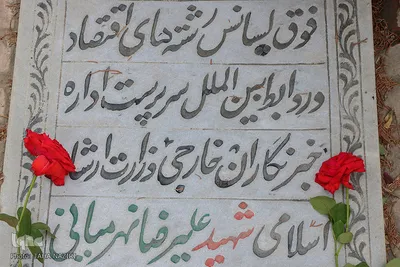 فوق لیسانس رشته های اقتصاد
و روابط بین الملل سرپرست اداره
خبرنگاران خارجی وزارت ارشاد
اسلامی شهید علیرضا نهرمیانی